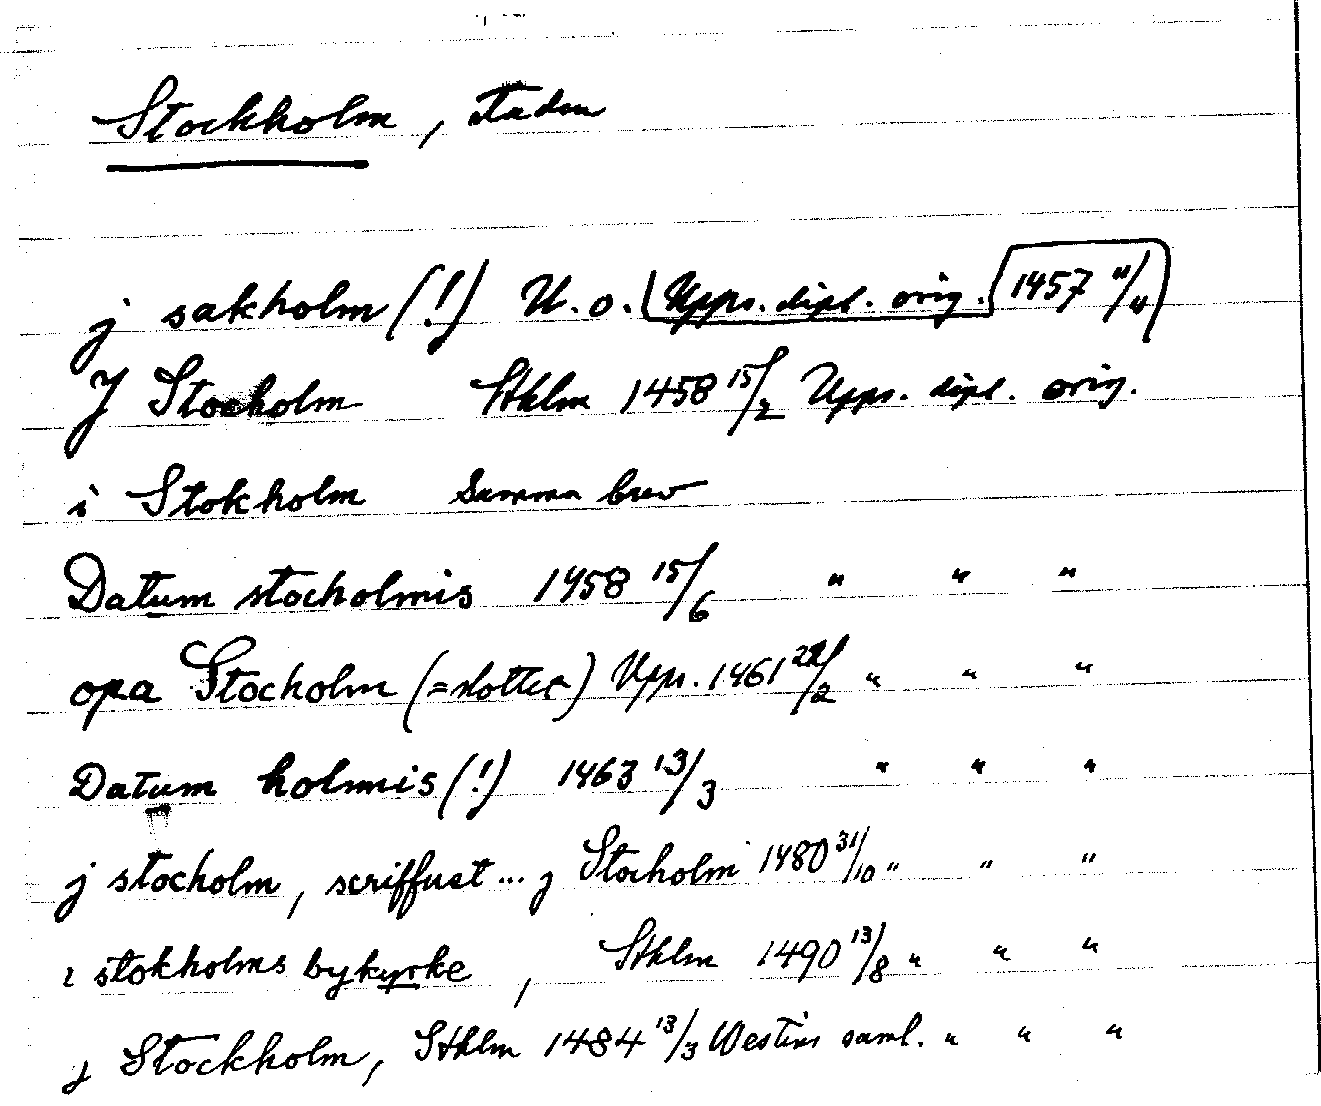 Stockholm, staden
j sakholm (!) U. o. Upps. dipl. orig. 1457 11/4
J Stocholm Sthlm 1458 15/2 Upps. dipl. orig.
i Stokholm Samma brev
Datum stocholmis 1458 15/6 " " "
opa Stocholm (=slottet) Upps. 1461 /2 " " "
Datum holmis (!) 1463 13/3 " " "
j stocholm, scriffuet ... j Stocholm 1480 31/10 " " "
i stokholms bykyrke, Sthlm 1490 13/8 " " "
j Stockholm, Sthlm 1484 13/3 Westins saml. " " "